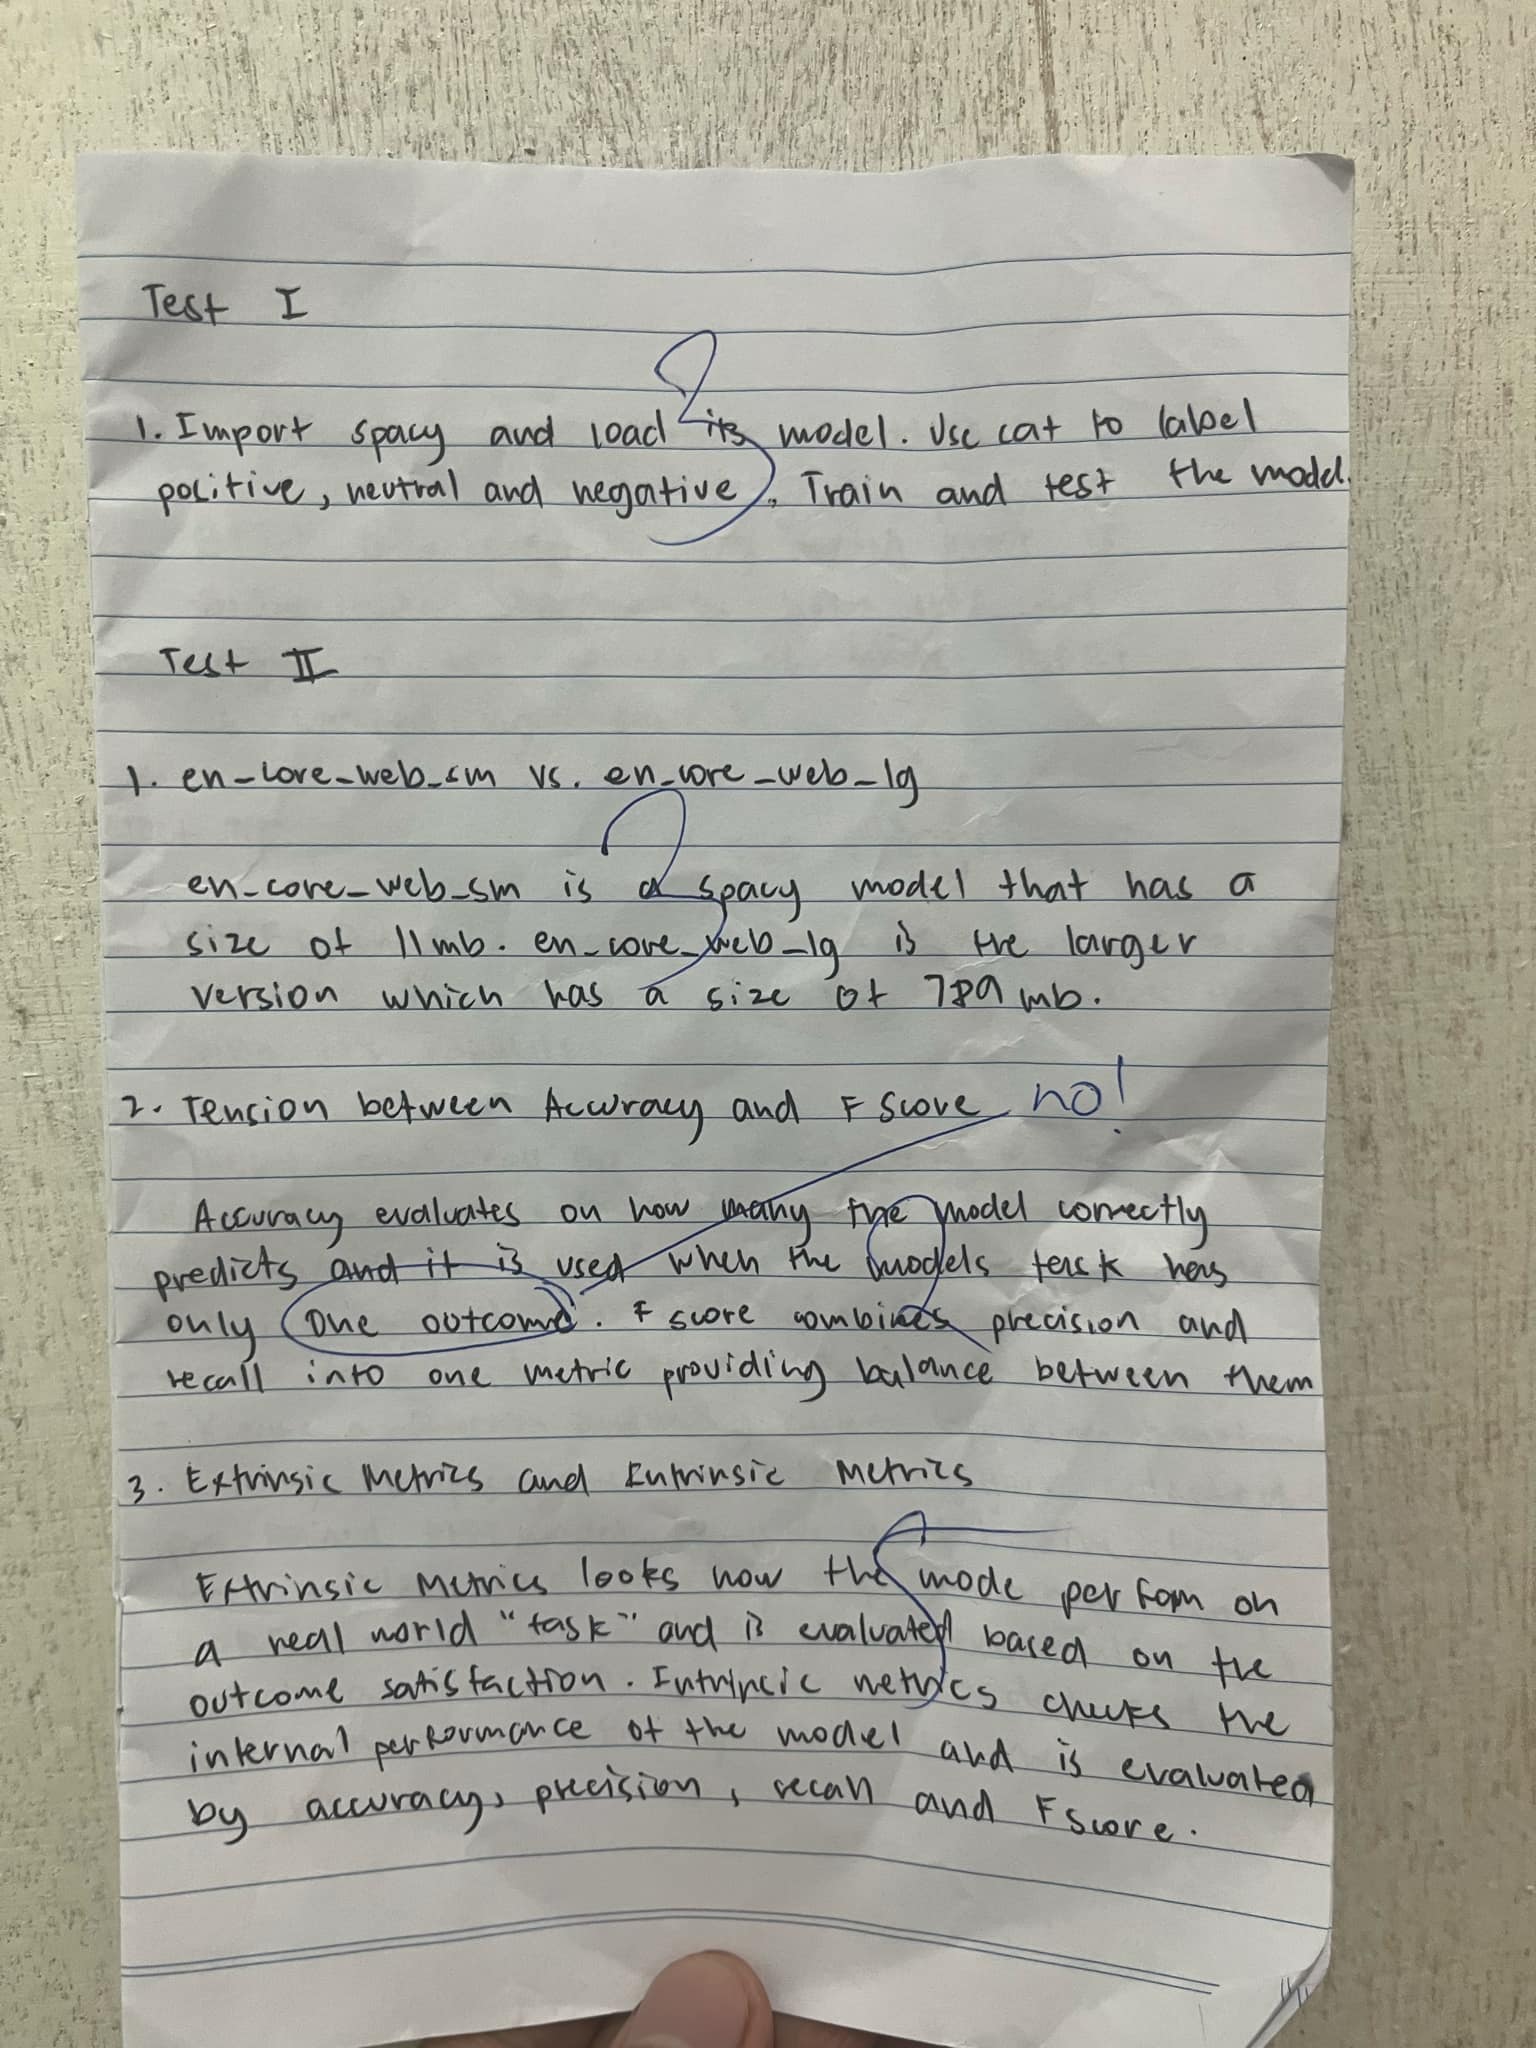 Test I
1. Import spacy and load its model. Use cat to label
positive, neutral and negative. Train and test the model.
Test II
1. en_core_web_sm vs. en_core_web_lg
en_core_web_sm is a spacy model that has a
size of 11mb. en_core_web_lg is the larger
version which has a size of 789 mb.
2. Tension between Accuracy and F Score no!
Accuracy evaluates on how many the model correctly
predicts and it is used when the models task has
only one outcome. F score combines precision and
recall into one metric providing balance between them
3. Extrinsic Metrics and Intrinsic Metrics
Extrinsic Metrics looks how the mode perfom on
a real world "task" and is evaluated based on the
outcome satisfaction. Intrinsic metrics checks the
internal performance of the model and is evaluated
by accuracy, precision, recall and F score.